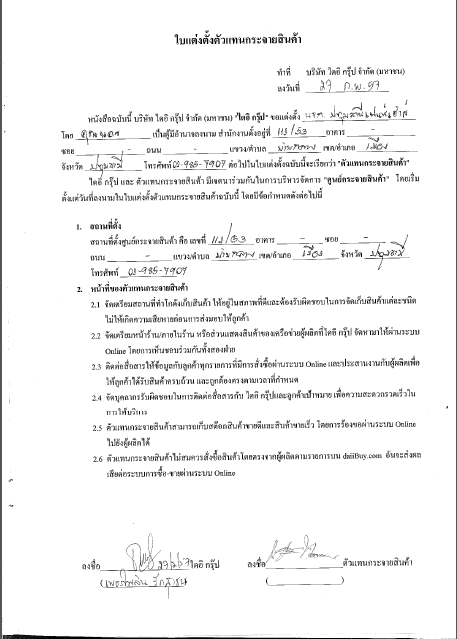 ใบแต่งตั้งตัวแทนกระจายสินค้า
ทำที่ บริษัท ไดอิ กรุ๊ป จำกัด (มหาชน)
ลงวันที่ 27 ก.พ. 67
หนังสือฉบับนี้ บริษัท ไดอิ กรุ๊ป จำกัด (มหาชน) "ไดอิ กรุ๊ป" ขอแต่งตั้ง
โดย เป็นผู้มีอำนาจลงนาม สำนักงานตั้งอยู่ที่ 113/53 อาคาร -
ซอย - ถนน - แขวง/ตำบล บ้านกลาง เขต/อำเภอ เมือง
จังหวัด ปทุมธานี โทรศัพท์ 02-985-7907 ต่อไปในใบแต่งตั้งฉบับนี้จะเรียกว่า "ตัวแทนกระจายสินค้า"
ไดอิ กรุ๊ป และ ตัวแทนกระจายสินค้า มีเจตนาร่วมกันในการบริหารจัดการ "ศูนย์กระจายสินค้า" โดยเริ่ม
ตั้งแต่วันที่ลงนามในใบแต่งตั้งตัวแทนกระจายสินค้าฉบับนี้ โดยมีข้อกำหนดดังต่อไปนี้
1. สถานที่ตั้ง
สถานที่ตั้งศูนย์กระจายสินค้า คือ เลขที่ 113/53 อาคาร - ซอย -
ถนน - แขวง/ตำบล บ้านกลาง เขต/อำเภอ เมือง จังหวัด ปทุมธานี
โทรศัพท์ 02-985-7907
2. หน้าที่ของตัวแทนกระจายสินค้า
2.1 จัดเตรียมสถานที่ทำโกดังเก็บสินค้า ให้อยู่ในสภาพที่ดีและต้องรับผิดชอบในการจัดเก็บสินค้าแต่ละชนิด
ไม่ให้เกิดความเสียหายก่อนการส่งมอบให้ลูกค้า
2.2 จัดเตรียมหน้าร้าน/ภายในร้าน หรือส่วนแสดงสินค้าของเครือข่ายผู้ผลิตที่ไดอิ กรุ๊ป จัดหามาให้ผ่านระบบ
Online โดยการเห็นชอบร่วมกันทั้งสองฝ่าย
2.3 ติดต่อสื่อสารให้ข้อมูลกับลูกค้าทุกรายการที่มีการสั่งซื้อผ่านระบบ Online และประสานงานกับผู้ผลิตเพื่อ
ให้ลูกค้าได้รับสินค้าครบถ้วน และถูกต้องตรงตามเวลาที่กำหนด
2.4 จัดบุคลากรรับผิดชอบในการติดต่อสื่อสารกับ ไดอิ กรุ๊ปและลูกค้าเป้าหมาย เพื่อความสะดวกรวดเร็วใน
การให้บริการ
2.5 ตัวแทนกระจายสินค้าสามารถเก็บสต๊อกสินค้าขายดีและสินค้าขายเร็ว โดยการร้องขอผ่านระบบ Online
ไปยังผู้ผลิตได้
2.6 ตัวแทนกระจายสินค้าไม่สมควรสั่งซื้อสินค้าโดยตรงจากผู้ผลิตตามรายการบน daiiBuy.com อันจะส่งผล
เสียต่อระบบการซื้อ-ขายผ่านระบบ Online
ลงชื่อ 27/2/67 ไดอิ กรุ๊ป ลงชื่อ ตัวแทนกระจายสินค้า